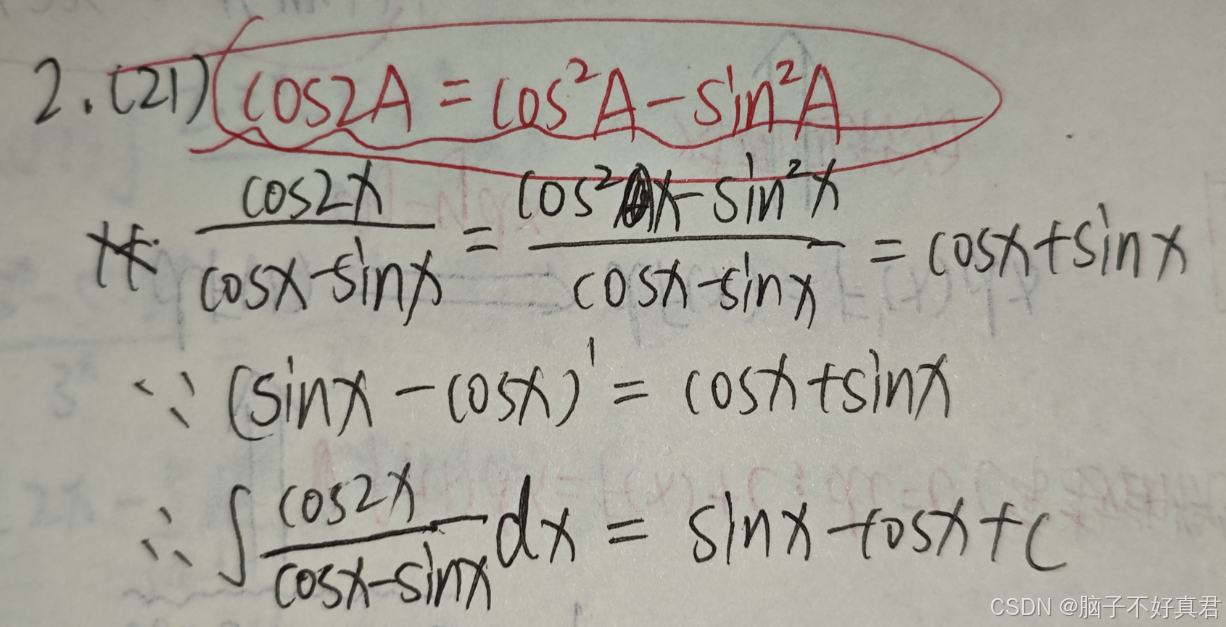 2.(21) cos2A = cos²A - sin²A
cos2x / (cosx - sinx) = (cos²x - sin²x) / (cosx - sinx) = cosx + sinx
∵ (sinx - cosx)' = cosx + sinx
∴ ∫ cos2x / (cosx - sinx) dx = sinx - cosx + C
CSDN @脑子不好真君